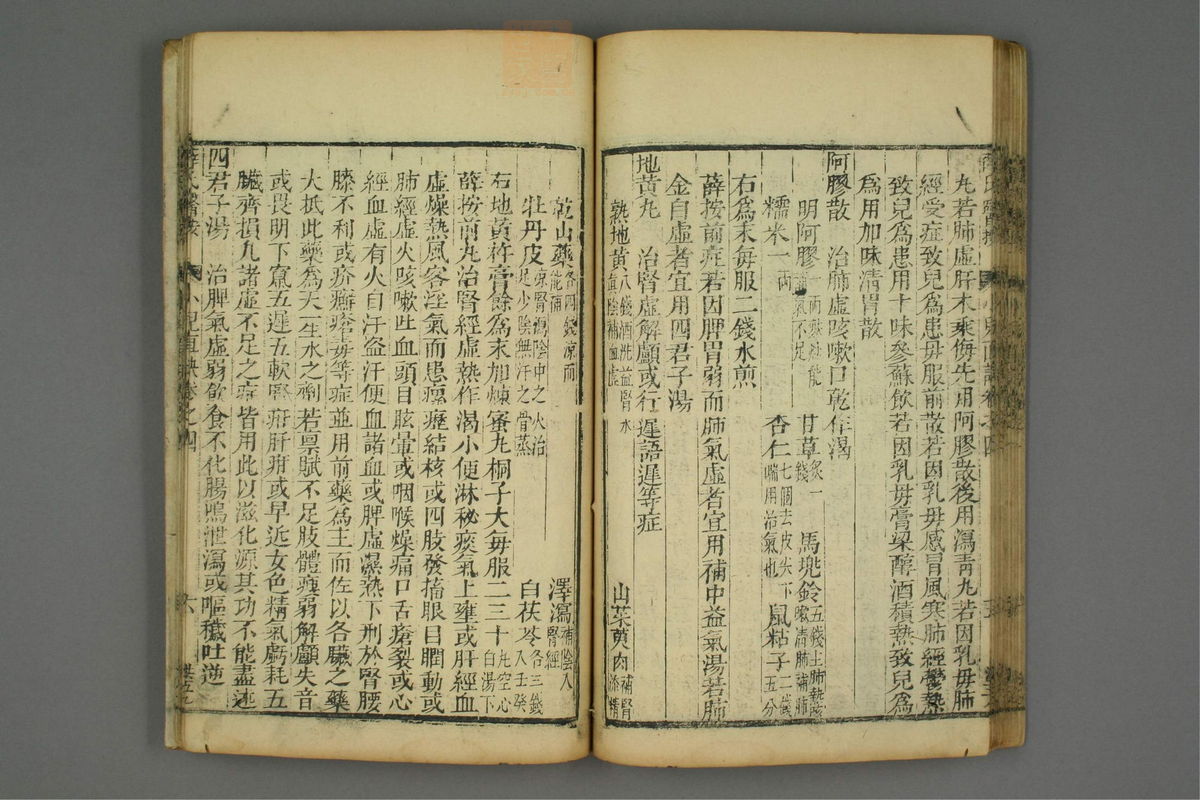 丸若肺虛肝木乘侮先用阿膠散後用瀉青丸若因乳母肺
經受症致兒為患毋服前散若因乳母感冒風寒肺經鬱熱
致兒為患用十味參蘇飲若因乳母膏梁醉酒積熱致兒為
為用加味清胃散
阿膠散 治肺虛咳嗽口乾作渴
明阿膠 甘草炙一錢 馬兜鈴五錢主肺熱咳嗽清肺補肺
糯米一兩 杏仁七個去皮尖下喘用治氣也 鼠粘子二錢五分
右為末每服二錢水煎
薛按前症若因脾胃弱而肺氣虛者宜用補中益氣湯若肺
金自虛者宜用四君子湯
地黃丸 治腎虛解顱或行遲語遲等症
熟地黃八錢酒洗益腎水真陰補血虛 山茱萸肉補腎添精
乾山藥各四錢涼而能補 澤瀉補陰入腎經
牡丹皮涼腎瀉陰中之火治足少陰無汗之骨蒸 白茯苓各三錢入壬癸
右地黃杵膏餘為末加煉蜜丸桐子大每服二三十丸空心白湯下
薛按前丸治腎經虛熱作渴小便淋秘痰氣上壅或肝經血
虛燥熱風客淫氣而患瘰癧結核或四肢發搐眼目瞤動或
肺經虛火咳嗽吐血頭目眩暈或咽喉燥痛口舌瘡裂或心
經血虛有火自汗盜汗便血諸血或脾虛濕熱下刑於腎腰
膝不利或疥癬瘡毒等症並用前藥為主而佐以各臟之藥
大抵此藥為天一生水之劑若禀賦不足肢體瘦弱解顱失音
或畏明下竄五遲五軟腎疳肝疳或早近女色精氣虧耗五
臟齊損凡諸虛不足之症皆用此以滋化源其功不能盡述
四君子湯 治脾氣虛弱飲食不化腸鳴泄瀉或嘔穢吐逆
薛氏醫按 小兒直訣卷之四 六